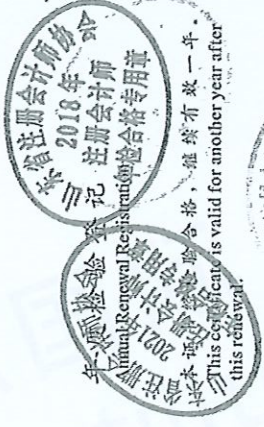 年度检验登记
Annual Renewal Registration
本证书经检验合格，继续有效一年。
This certificate is valid for another year after
this renewal.
山东省注册会计师协会
2018年
注册会计师
年检合格专用章
2021年